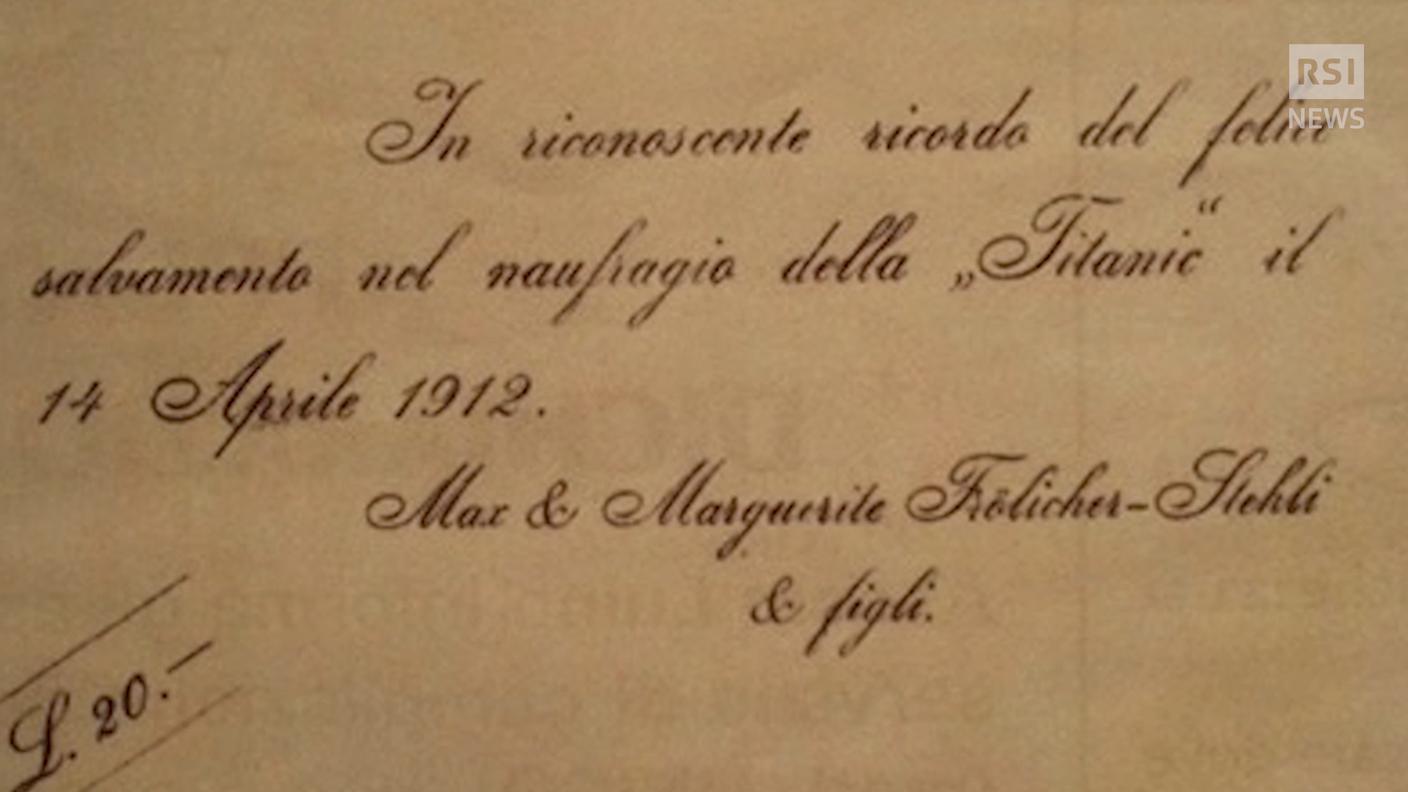 RSI
NEWS
In riconoscente ricordo del felice
salvamento nel naufragio della „Titanic“ il
14 Aprile 1912.
Max & Marguerite Frölicher-Stehli
& figli.
L. 20.-